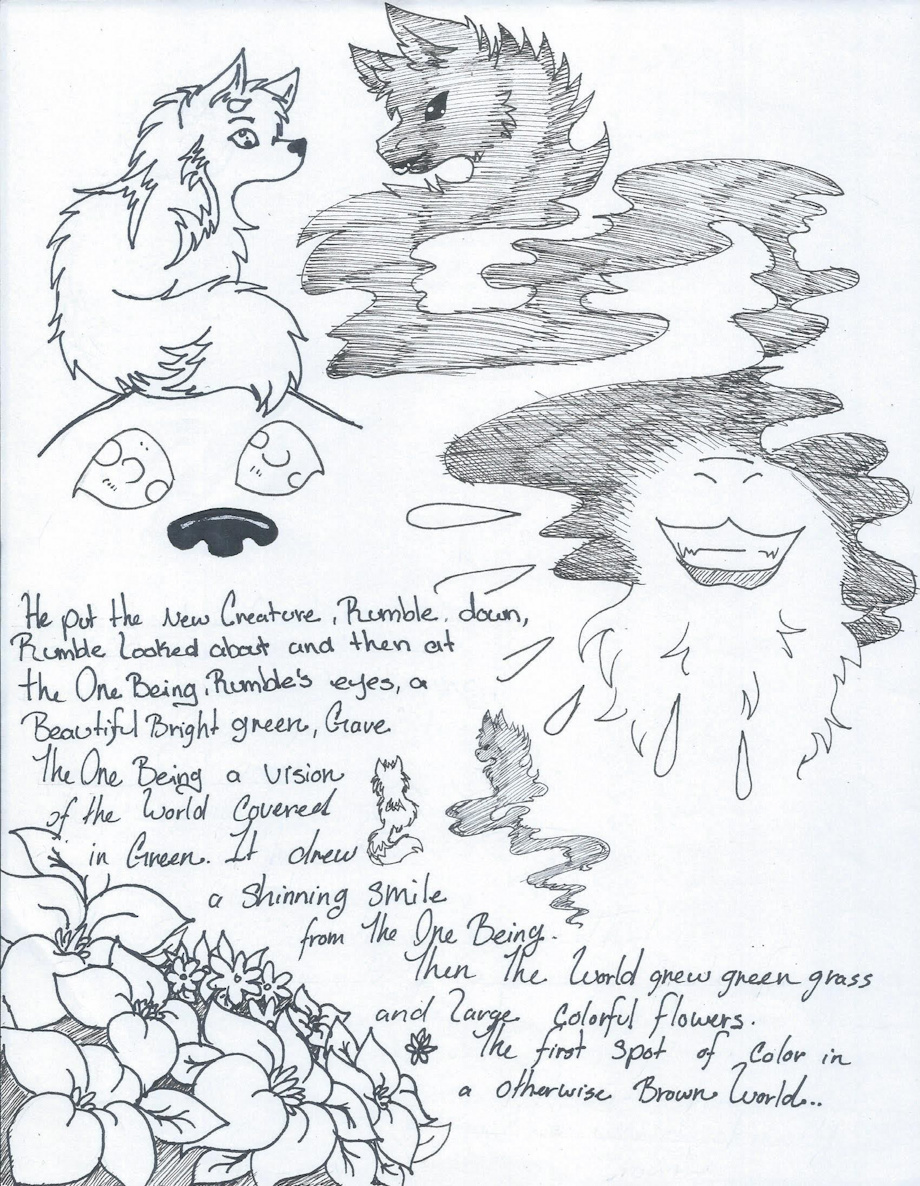 He put the New Creature, Rumble. down,
Rumble Looked about and then at
the One Being, Rumble's eyes, a
Beautiful Bright green, Gave
The One Being a vision
of the World Covered
in Green. It drew
a Shinning Smile
from The One Being.
Then The World grew green grass
and Large Colorful flowers.
The first Spot of Color in
a otherwise Brown World..